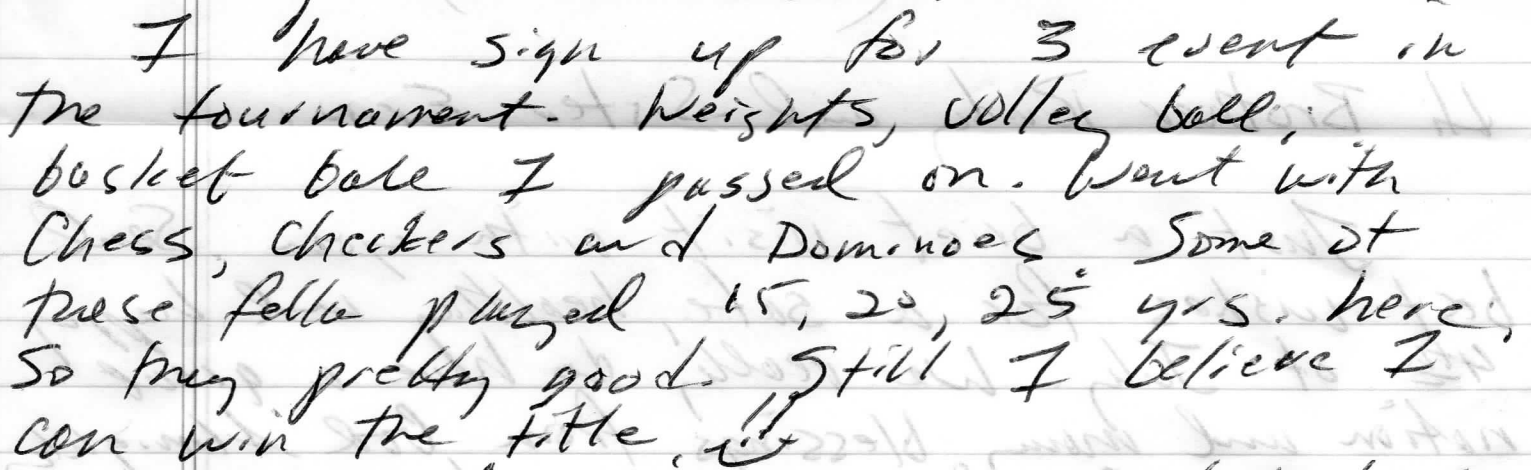 I have sign up for 3 event in
the tournament. Weights, volley ball,
basket ball I passed on. Went with
Chess, Checkers and Dominoes. Some of
these fella played 15, 20, 25 yrs. here,
So they pretty good. Still I believe I
can win the title.